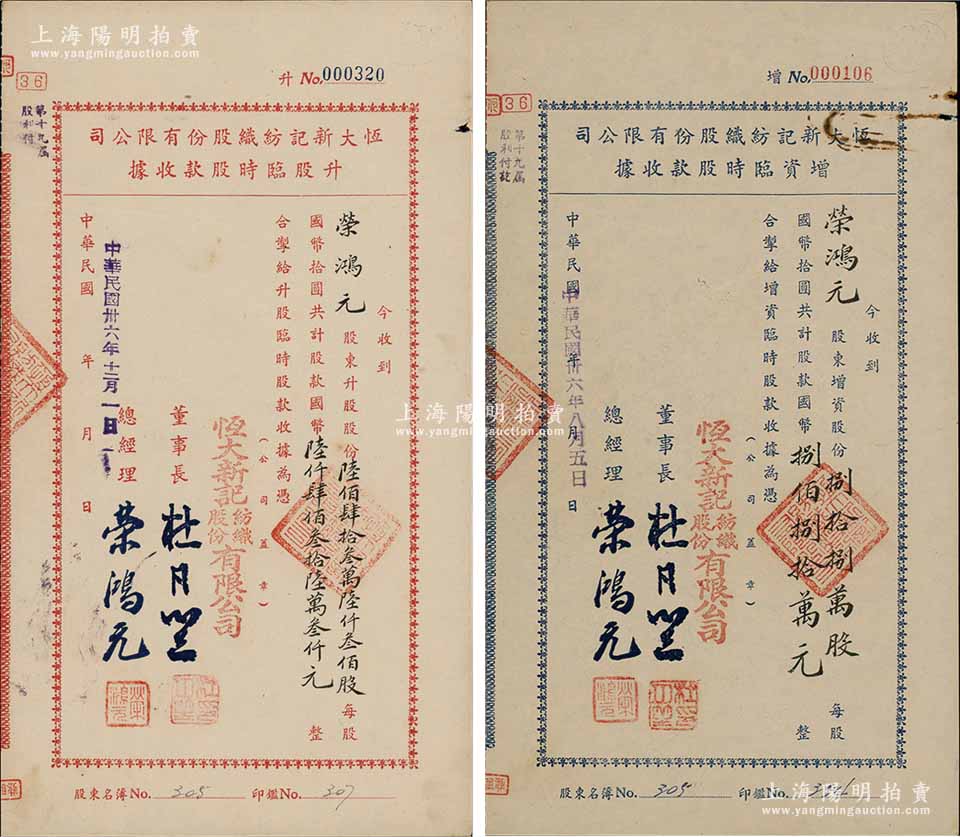 上海陽明拍賣
www.yangmingauction.com
升 No. 000320
36
第十九届
股利付
司公限有份股織紡記新大恆
據收款股時臨股升
今收到
榮鴻元 股東升股股份 陸佰肆拾叁萬陸仟叁佰股 每股
國幣拾圓共計股款國幣 陸仟肆佰叁拾陸萬叁仟元 整
合掣給升股臨時股款收據為憑
(公司蓋章)
恆大新記紡織股份有限公司
董事長 杜月笙
總經理 榮鴻元
中華民國 年 月 日
中華民國卅六年十二月一日
股東名簿No. 305 印鑑No. 307
上海陽明拍賣
www.yangmingauction.com
上海陽明拍賣
www.yangmingauction.com
增 No. 000106
36
第十九届
股利付訖
司公限有份股織紡記新大恆
據收款股時臨資增
今收到
榮鴻元 股東增資股份 捌拾捌萬股 每股
國幣拾圓共計股款國幣 捌佰捌拾萬元 整
合掣給增資臨時股款收據為憑
(公司蓋章)
恆大新記紡織股份有限公司
董事長 杜月笙
總經理 榮鴻元
中華民國 年 月 日
中華民國卅六年八月五日
股東名簿No. 305 印鑑No.
上海陽明拍賣
www.yangmingauction.com